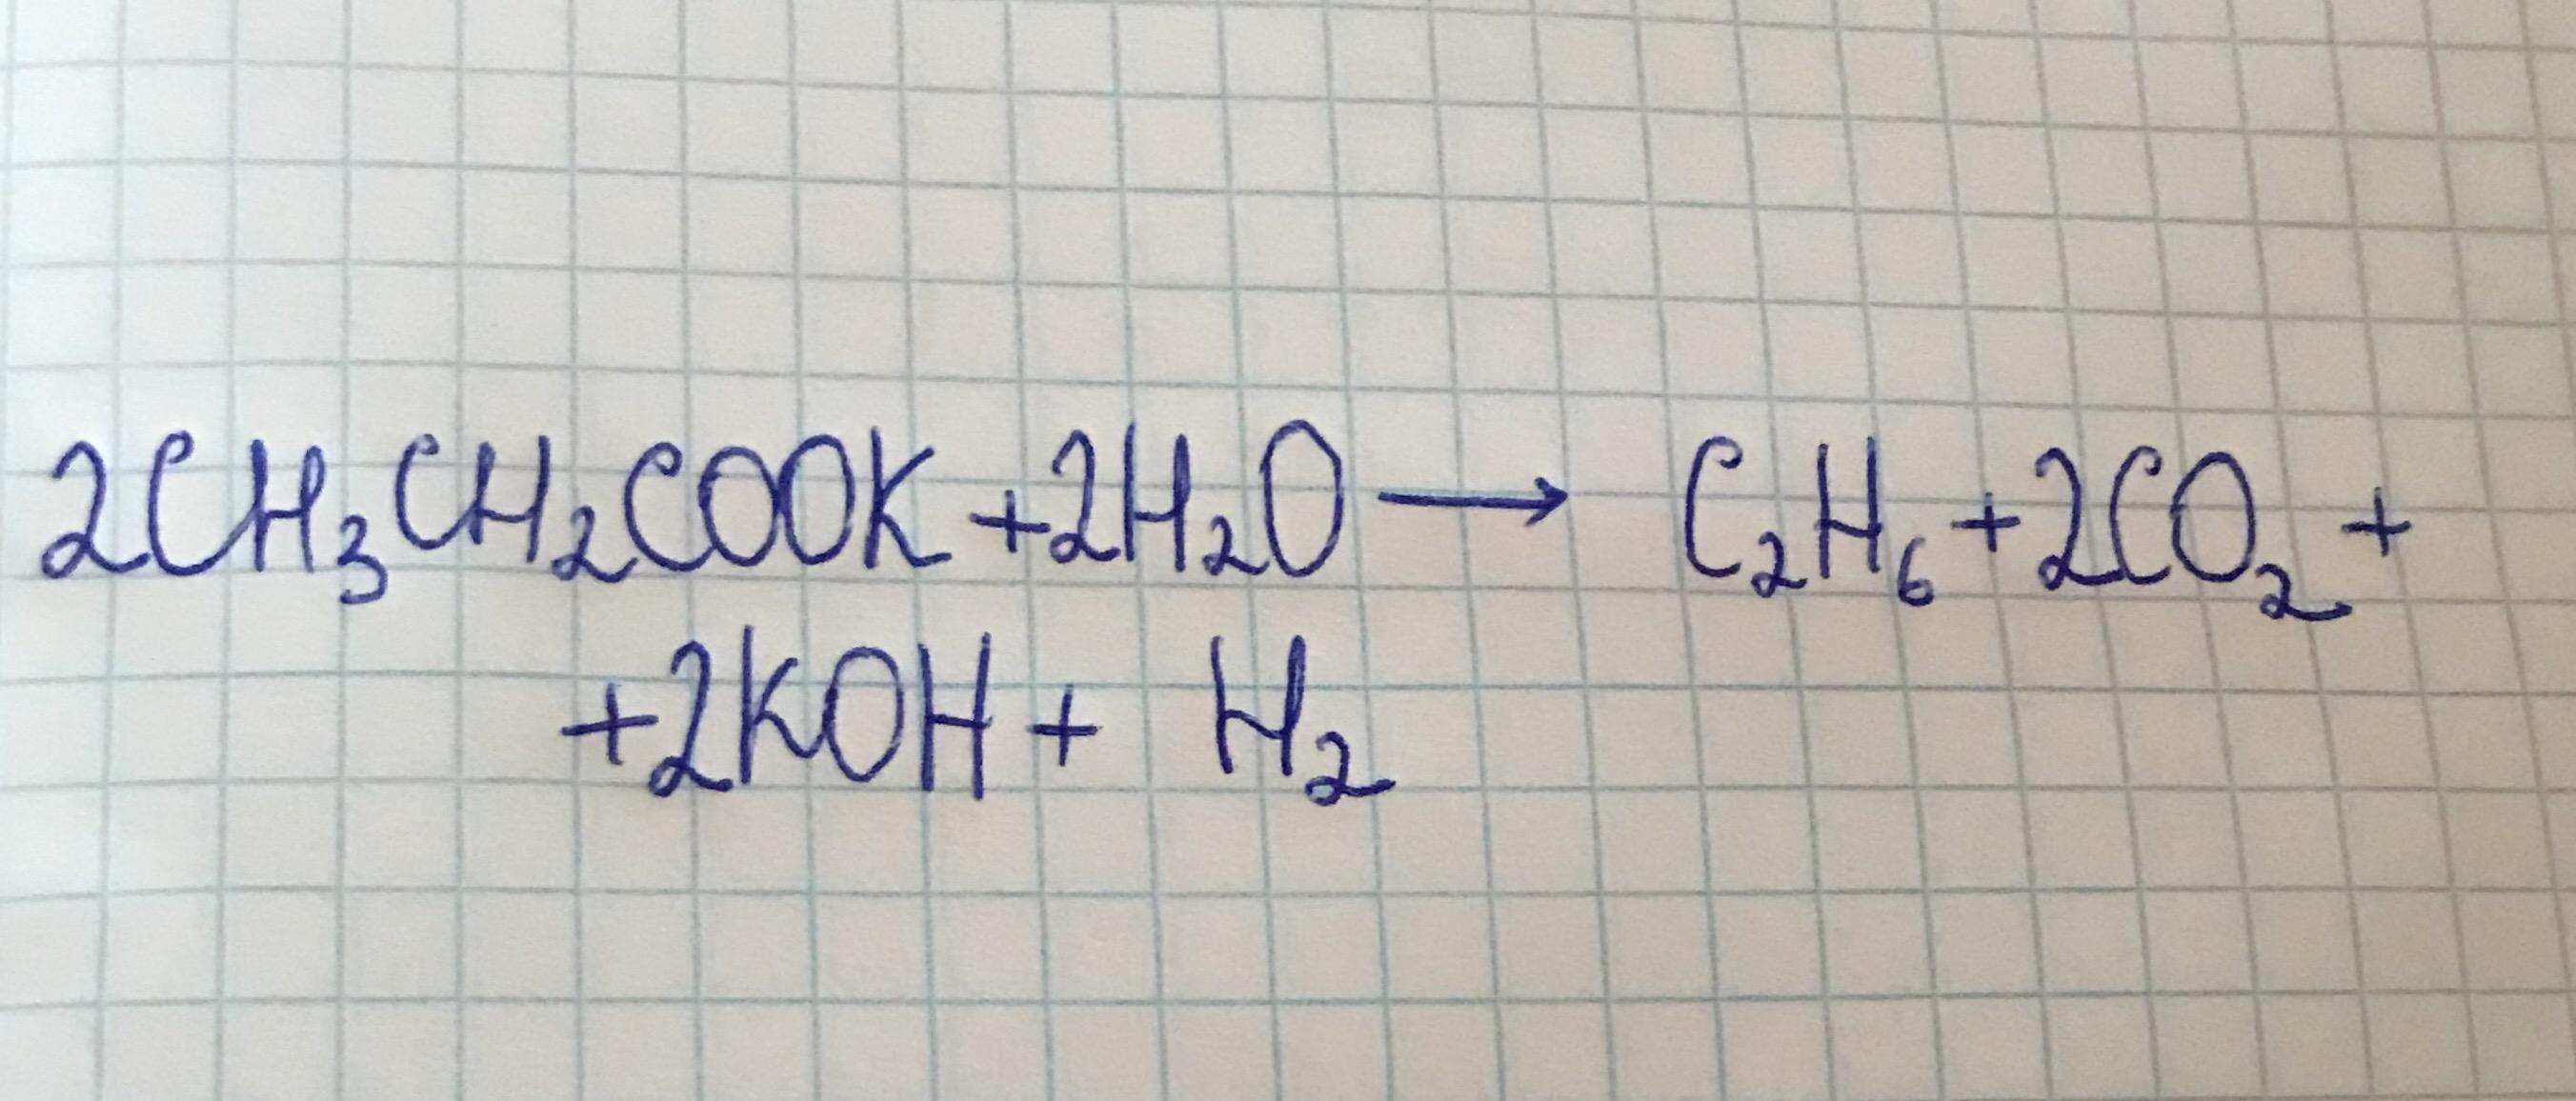 2CH₃CH₂COOK +2H₂O → C₂H₆ +2CO₂ +
+2KOH + H₂